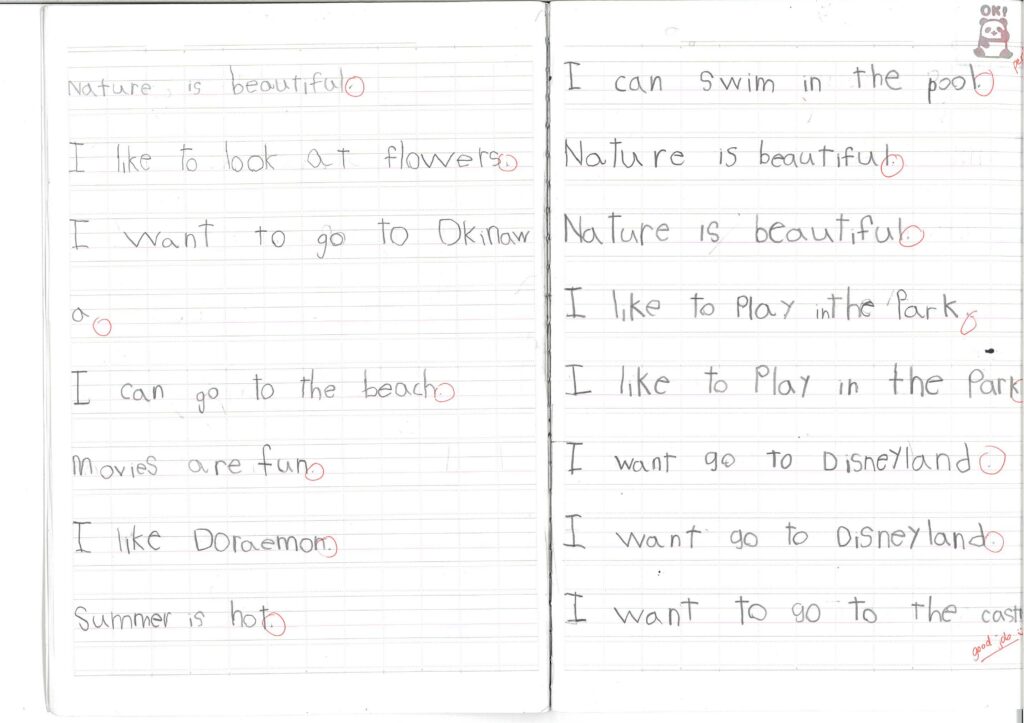 Nature is beautiful.
I like to look at flowers.
I want to go to Okinaw
a.
I can go to the beach.
Movies are fun.
I like Doraemon.
Summer is hot.
OK!
I can swim in the pool.
Nature is beautiful.
Nature is beautiful.
I like to Play in the Park.
I like to Play in the Park
I want go to Disneyland.
I want go to Disneyland.
I want to go to the
good job